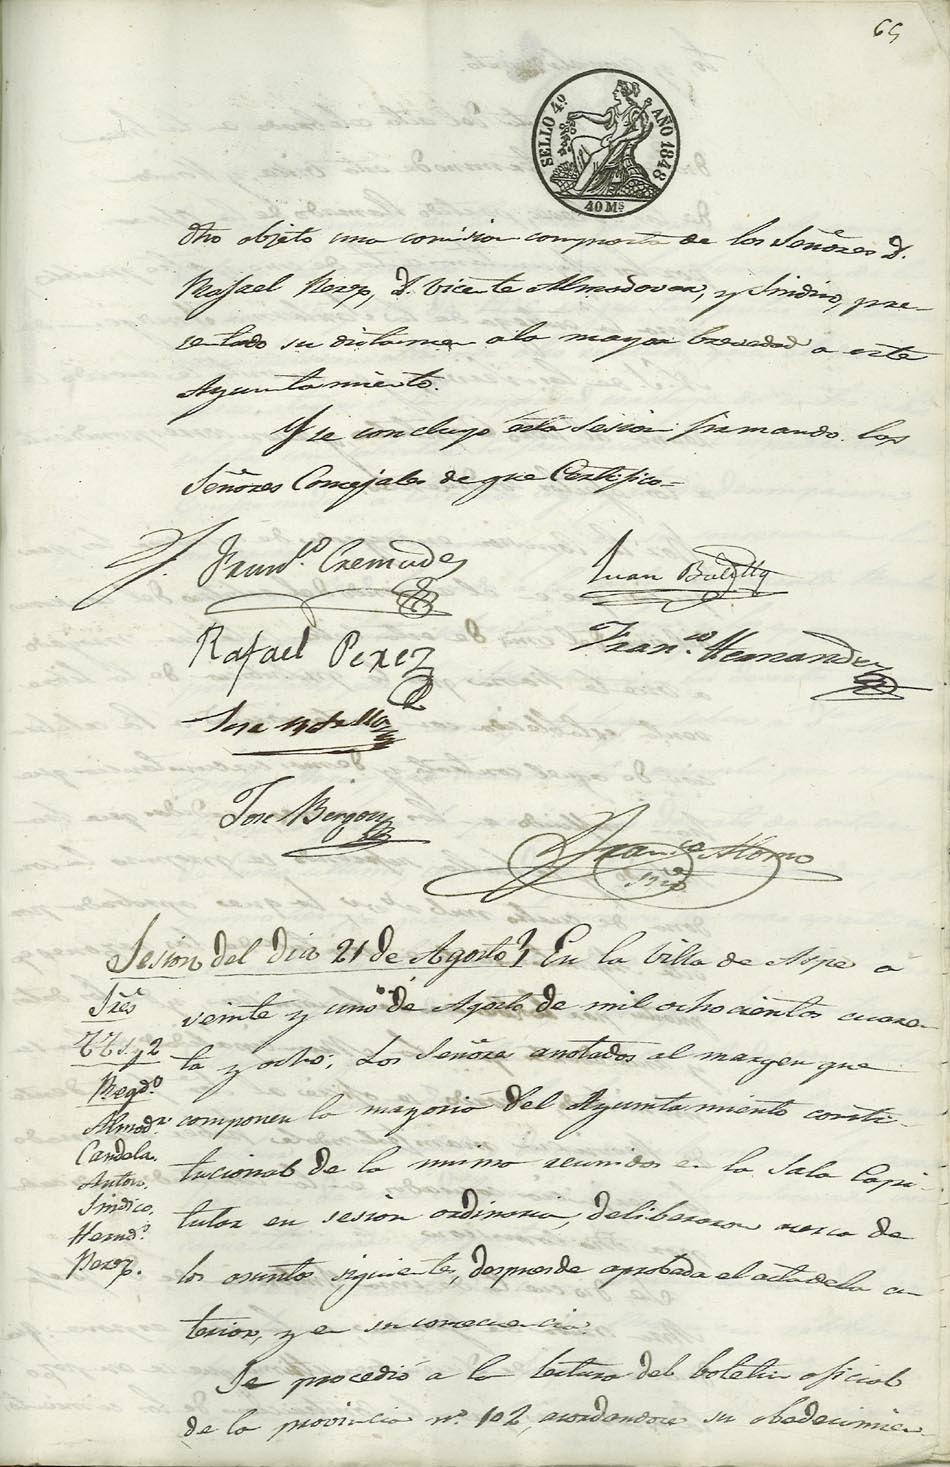 65
SELLO 4º AÑO 1848
40 Ms
dho objeto una comision compuesta de los Señores D.
Rafael Perez, D. Vicente Almodovar, y Sindico, pre-
sentado su dictamen a la mayor brevedad a este
Ayuntamiento.
Y se concluyó esta sesion firmando los
Señores Concejales de que Certifico=
Franco. Cremades
Juan
Rafael Perez
Franco. Hernandez
Jose
Jose
Franco Alonso
Srio
Sesion del dia 21 de Agosto} En la Villa de Aspe a
veinte y uno de Agosto de mil ochocientos cuaren-
ta y ocho; Los Señores anotados al margen que
componen la mayoria del Ayuntamiento consti-
tucional de la misma reunidos en la Sala Capi-
tular en sesion ordinaria, deliberaron acerca de
los asuntos siguientes, despues de aprobada el acta de la an-
terior, y en su consecuencia.
Se procedió a la lectura del boletin oficial
de la provincia nº 102, acordandose su obedecimien-
Sres
TTs. y 2
Regdo.
Almodr
Candela.
Anton.
Sindico.
Herndz.
Perez.